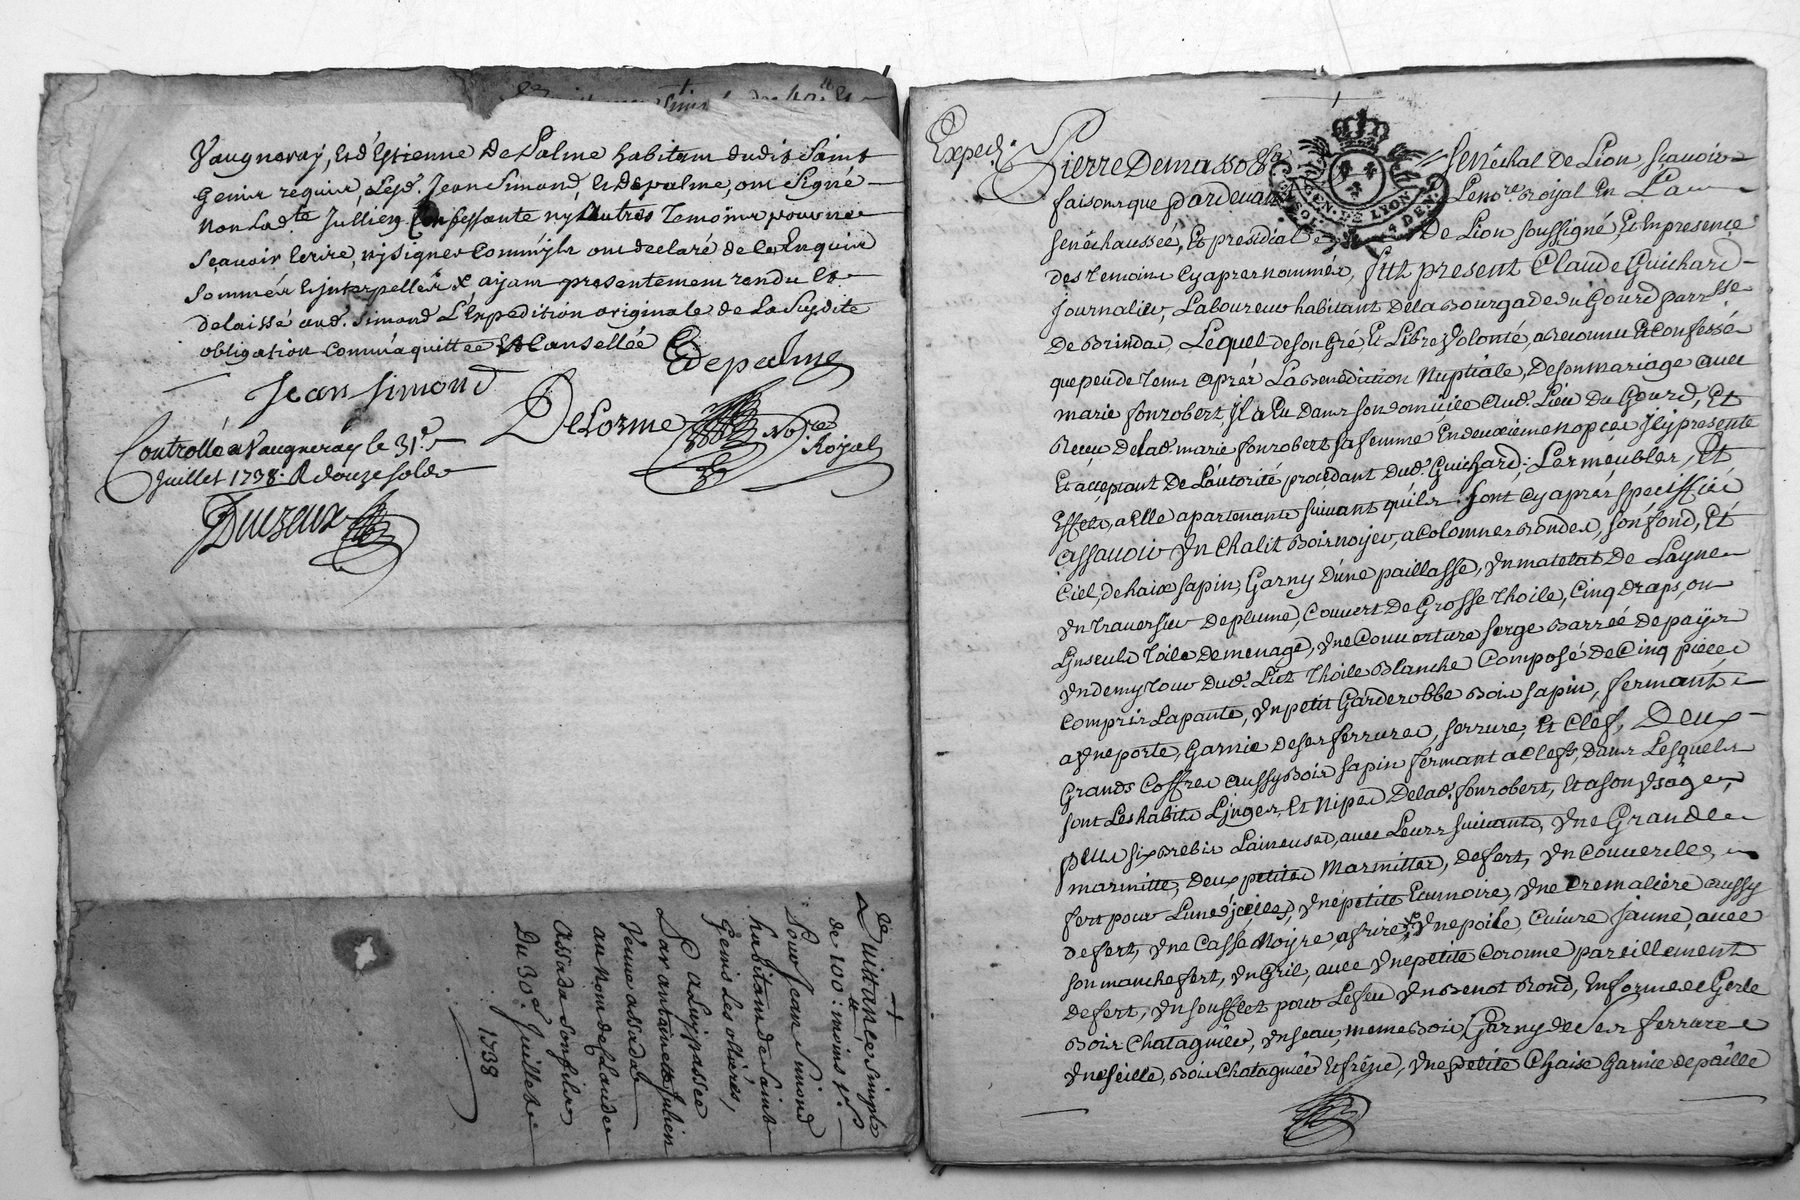 Vaugneray, Et d'Estienne Depalme habitant dudit Saint
Genis requis, Lesd. Jean Simond, Et Depalme, ont Signé
Non Lad.te Jullien Confessante ny Autres Temoins pour ne
Sçavoir Ecrire, ny Signer Comm'yls ont declaré de ce Enquis
Sommés Et jnterpellés & ayant presentement rendu Et
delaissé aud. Simond L'Expedition originale de La Susdite
obligation Comm'aquittée Et Cansellée
Depalme
Jean Simond
DeLorme No.re Royal
Controllé a Vaugneray le 31.e
Juillet 1738. R douze sols
Duezeux
Quittance simple
de 100.tt moins 1.s
Pour Jean Simond
habitant de Saint
Genis les ollières,
a Luy passée
Par antoinette Julien
Veuve assada
au Nom de Claude
assada son fils
Du 30.e Juillet
1738
Exped.
Pierre Demasso Sénéchal de Lion sçavoir
faisons que Pardevant Le no.re Royal En La
senéchaussée, Et presidial de Lion soussigné, Et En presence
des Temoins Cy apres nommés, fut present Claude Guichard
Journalier, Laboureur habitant De La Bourgade du Gourd parr.sse
De Brindas, Lequel de son Gré, Et Libre Volonté, a Reconnu Et Confessé
que peu de Tems aprés La Benediction Nuptiale, De son mariage avec
marie fonrobert, jl a Eu Dans son domicile aud. Lieu Du Gourd, Et
Receu De Lad. marie fonrobert sa femme En deuxieme nopces jcy presente
Et acceptant De L'autorité procedant Dud. Guichard; Les meubles, Et
Effets, a Elle apartenants suivant qu'ils sont Cy aprés specifiiés
assavoir Vn Chalit Bois noÿer, a Colomnes Rondes, son fond, Et
Ciel, de haix sapin, Garny D'une paillasse, Vn matelat De Layne
Vn Traversier De plume, Couvert De Grosse Thoile, Cinq Draps, ou
Linseuls Toile De menage, Vne Couverture serge Barrée De paÿs
Vn demy Tour Dud. Lict Thoile Blanche Composé De Cinq pieces
Compris La pante, Vn petit Garderobbe Bois sapin, fermant
a Vne porte, Garnie De ses ferrures, serrure, Et Clef, Deux
Grands Coffres aussy Bois sapin fermant a Clefs, Dans Lesquels
sont Les habits Linges, Et Nipes De Lad. fonrobert, Et a son Vsage,
Plus six Brebis Laineuses, avec Leurs suivants, Vne Grande
marmitte, Deux petites Marmittes, De fert, Vn Couvercle,
fert pour L'une d'jcelles, Vne petite Ecumoire, Vne Cremalière aussy
de fert, Vne Casse Noÿre, a frire & Vne poile, Cuivre Jaune, avec
son manche fert, Vn Gril, avec Vne petite Coronne pareillement
De fert, Vn soufflet pour Le feu Vn Benot Rond, En forme de Gerle
Bois Chatagnier, Vn seau, meme Bois, Garny De ses ferrures
Vne seille, Bois Chatagnier Et frêne, Vne petite Chaise Garnie de paille